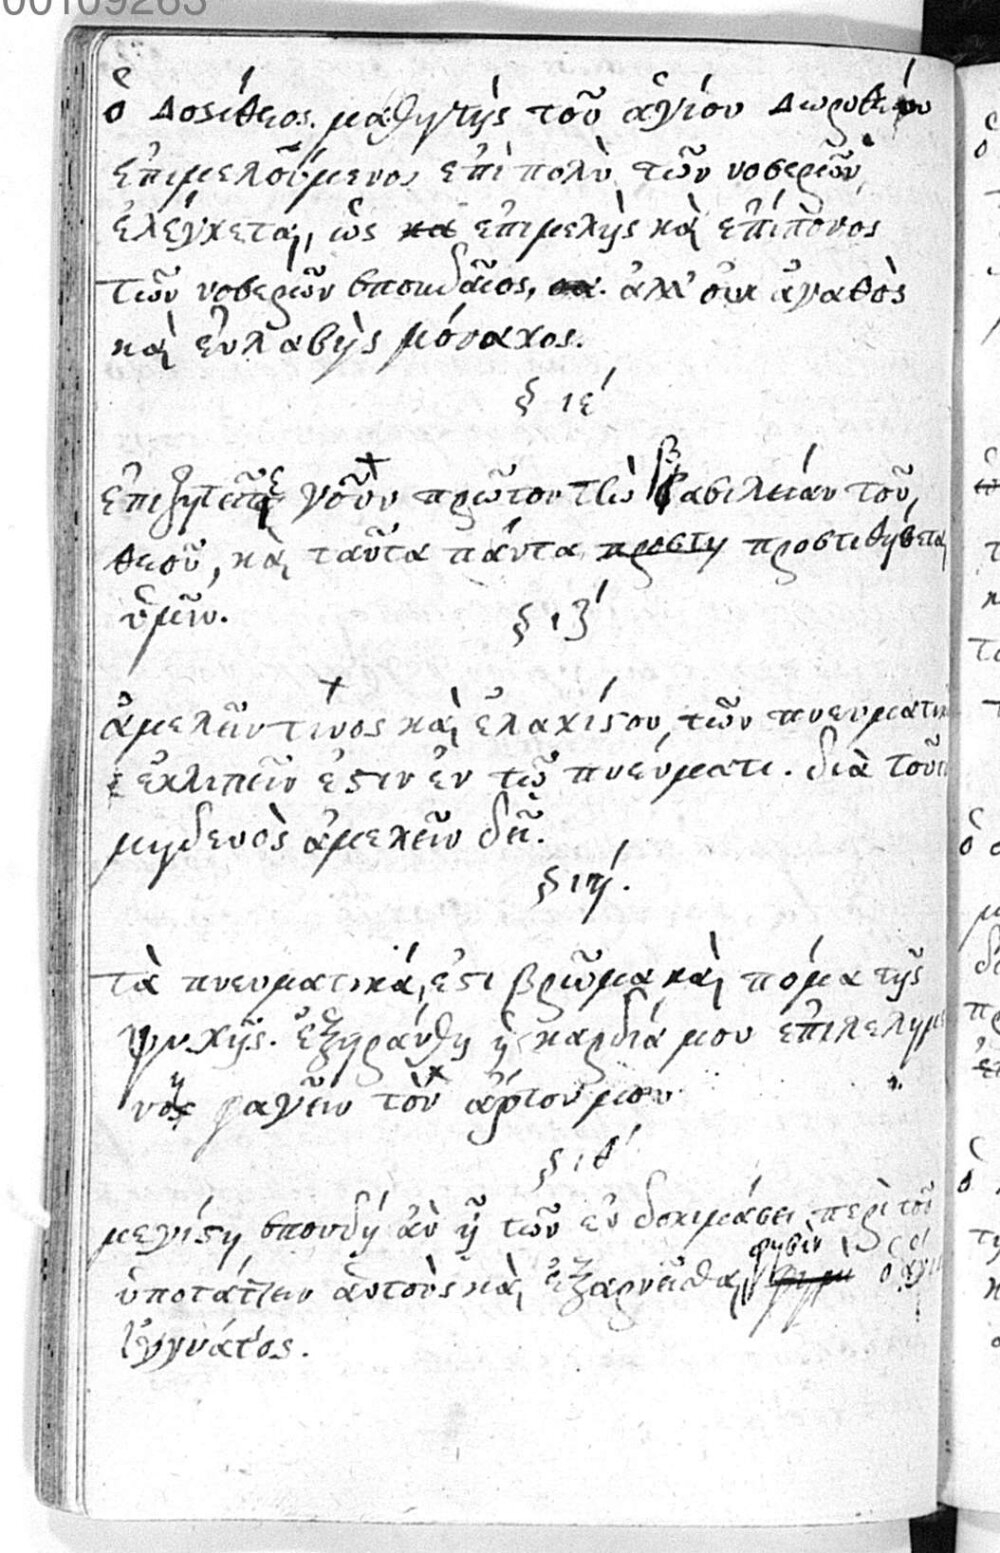 00109263
ὁ Δοσίθεος μαθητὴς τοῦ ἁγίου Δωροθέου
ἐπιμελοῦμενος ἐπὶ πολὺ τῶν νοσερῶν
ἐλέγχεται, ὡς ἐπιμελὴς καὶ ἐπίπονος
τῶν νοσερῶν σπουδαῖος, ἀλλ' οὐκ ἀγαθὸς
καὶ εὐλαβὴς μόναχος.
§ ιϛ'
ἐπιζητεῖτε γοῦν πρῶτον τὴν βασιλείαν τοῦ
θεοῦ, καὶ ταῦτα πάντα προστη προστιθήσεται
ὑμῖν.
§ ιζ'
ἀμελεῖν τίνος καὶ ἐλαχίστου τῶν πνευματικ
ἐκλιπεῖν ἐστιν ἐν τῷ πνεύματι. διὰ τοῦτ
μηδενὸς ἀμελεῖν δεῖ.
§ ιη'.
τὰ πνευματικά, ἐστι βρῶμα καὶ πόμα τῆς
ψυχῆς. ἐξηράνθη ἡ καρδιά μου ἐπιλελησμέ
νος φαγεῖν τὸν ἄρτον μου
§ ιθ'
μεγίστη σπουδή ἂν ᾖ τῶν ἐν δοκιμάσει περὶ τοῦ
ὑποτάττειν ἀυτοὺς καὶ ἐξαρνεῖσθαι, φησὶν ὁ ἅγιο
Ἰγνάτιος.